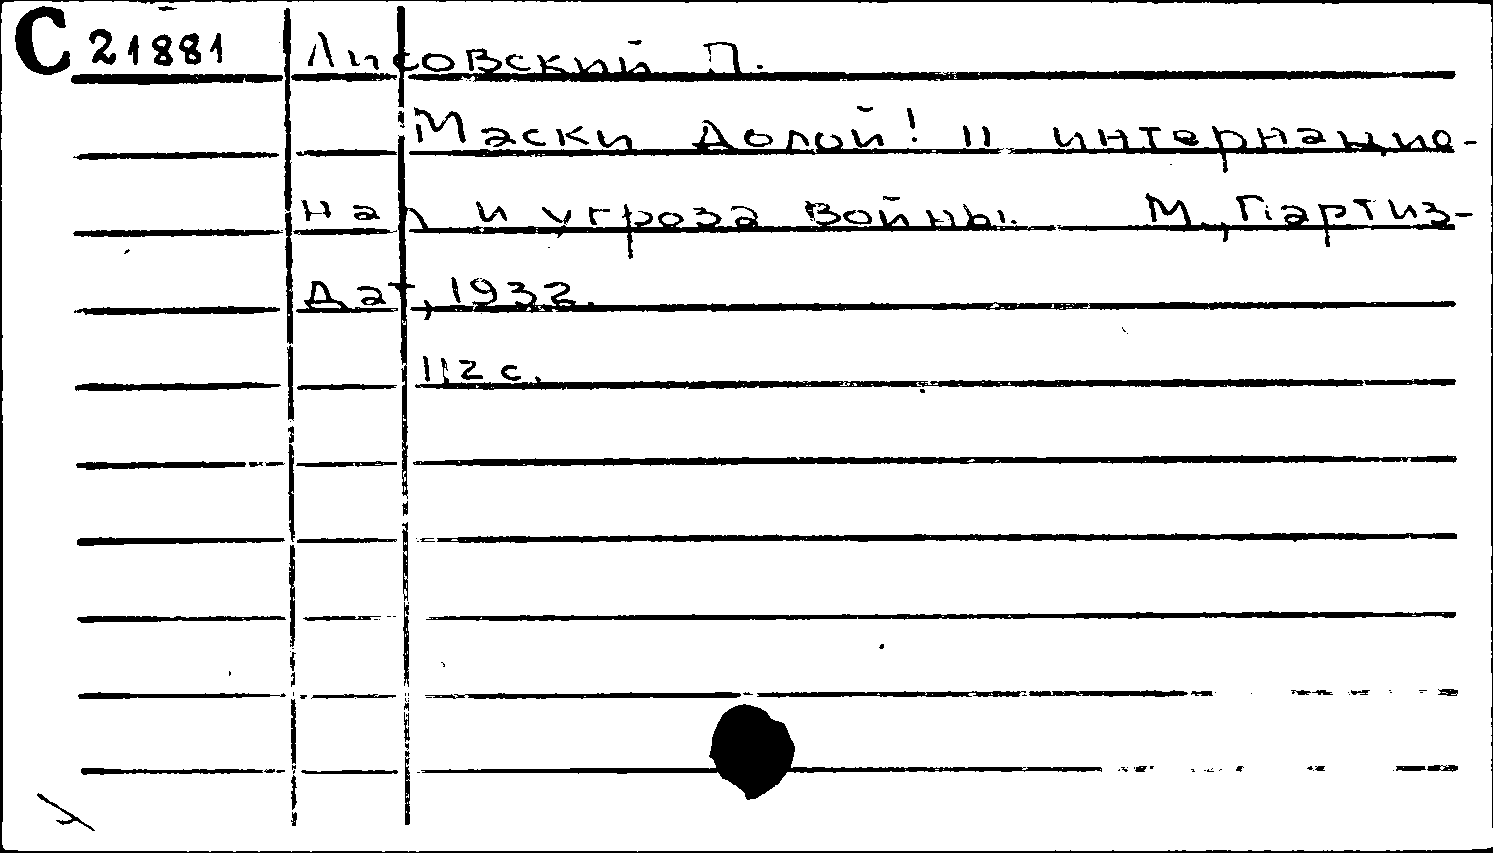 С 21881 Лисовский П.
Маски долой! II интернацио-
нал и угроза войны. М., Партиз-
дат, 1932.
112 с.